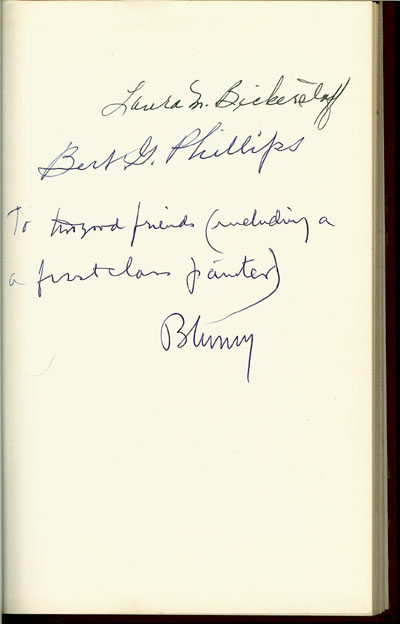 Laura M. Bickerstaff
Bert G. Phillips
To two good friends (including a
a first class painter)